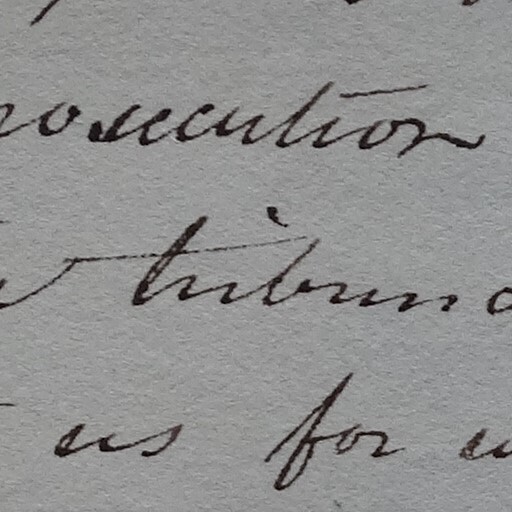 rosecution
tribuna
us for